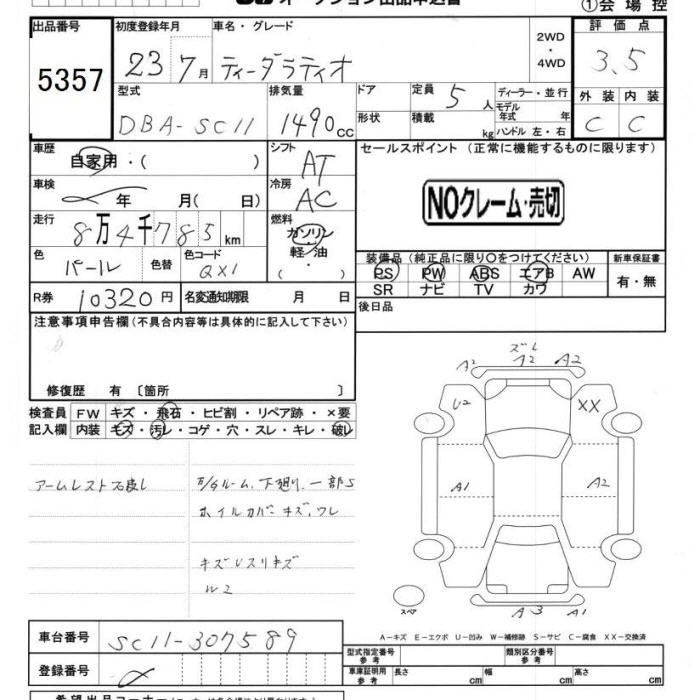 ①会場控
出品番号
5357
初度登録年月
23 7月
車名・グレード
ティーダラティオ
2WD
・
4WD
評価点
3.5
外装 内装
C C
型式
DBA-SC11
排気量
1490cc
ドア
形状
定員 5人
積載 kg
ディーラー・並行
モデル年式 年
ハンドル 左・右
車歴
自家用・( )
シフト
AT
車検
年 月( 日)
冷房
AC
走行
8万4千785km
燃料
ガソリン
軽・油
( ・ )
色
パール
色替
色コード
QX1
R券 10320円
名変通知期限 月 日
セールスポイント (正常に機能するものに限ります)
NOクレーム・売切
装備品 (純正品に限り○をつけてください)
PS PW ABS エアB AW
SR ナビ TV カワ
新車保証書
有・無
後日品
注意事項申告欄 (不具合内容等は具体的に記入して下さい)
修復歴 有 〔箇所 〕
検査員 FW キズ・飛石・ヒビ割・リペア跡・×要
記入欄 内装 キズ・汚レ・コゲ・穴・スレ・キレ・破レ
アームレスト不良し
ルーム、下廻り、一部S
ホイルカバーキズ、ワレ
ズレ
A2 A2 A2
U2 XX
A1 A2
A3 A1
スペア
A－キズ E－エクボ U－凹み W－補修跡 S－サビ C－腐食 XX－交換済
車台番号 SC11-307589
登録番号
型式指定番号 参考
類別区分番号 参考
車庫証明用 参考 長さ cm 幅 cm 高さ cm